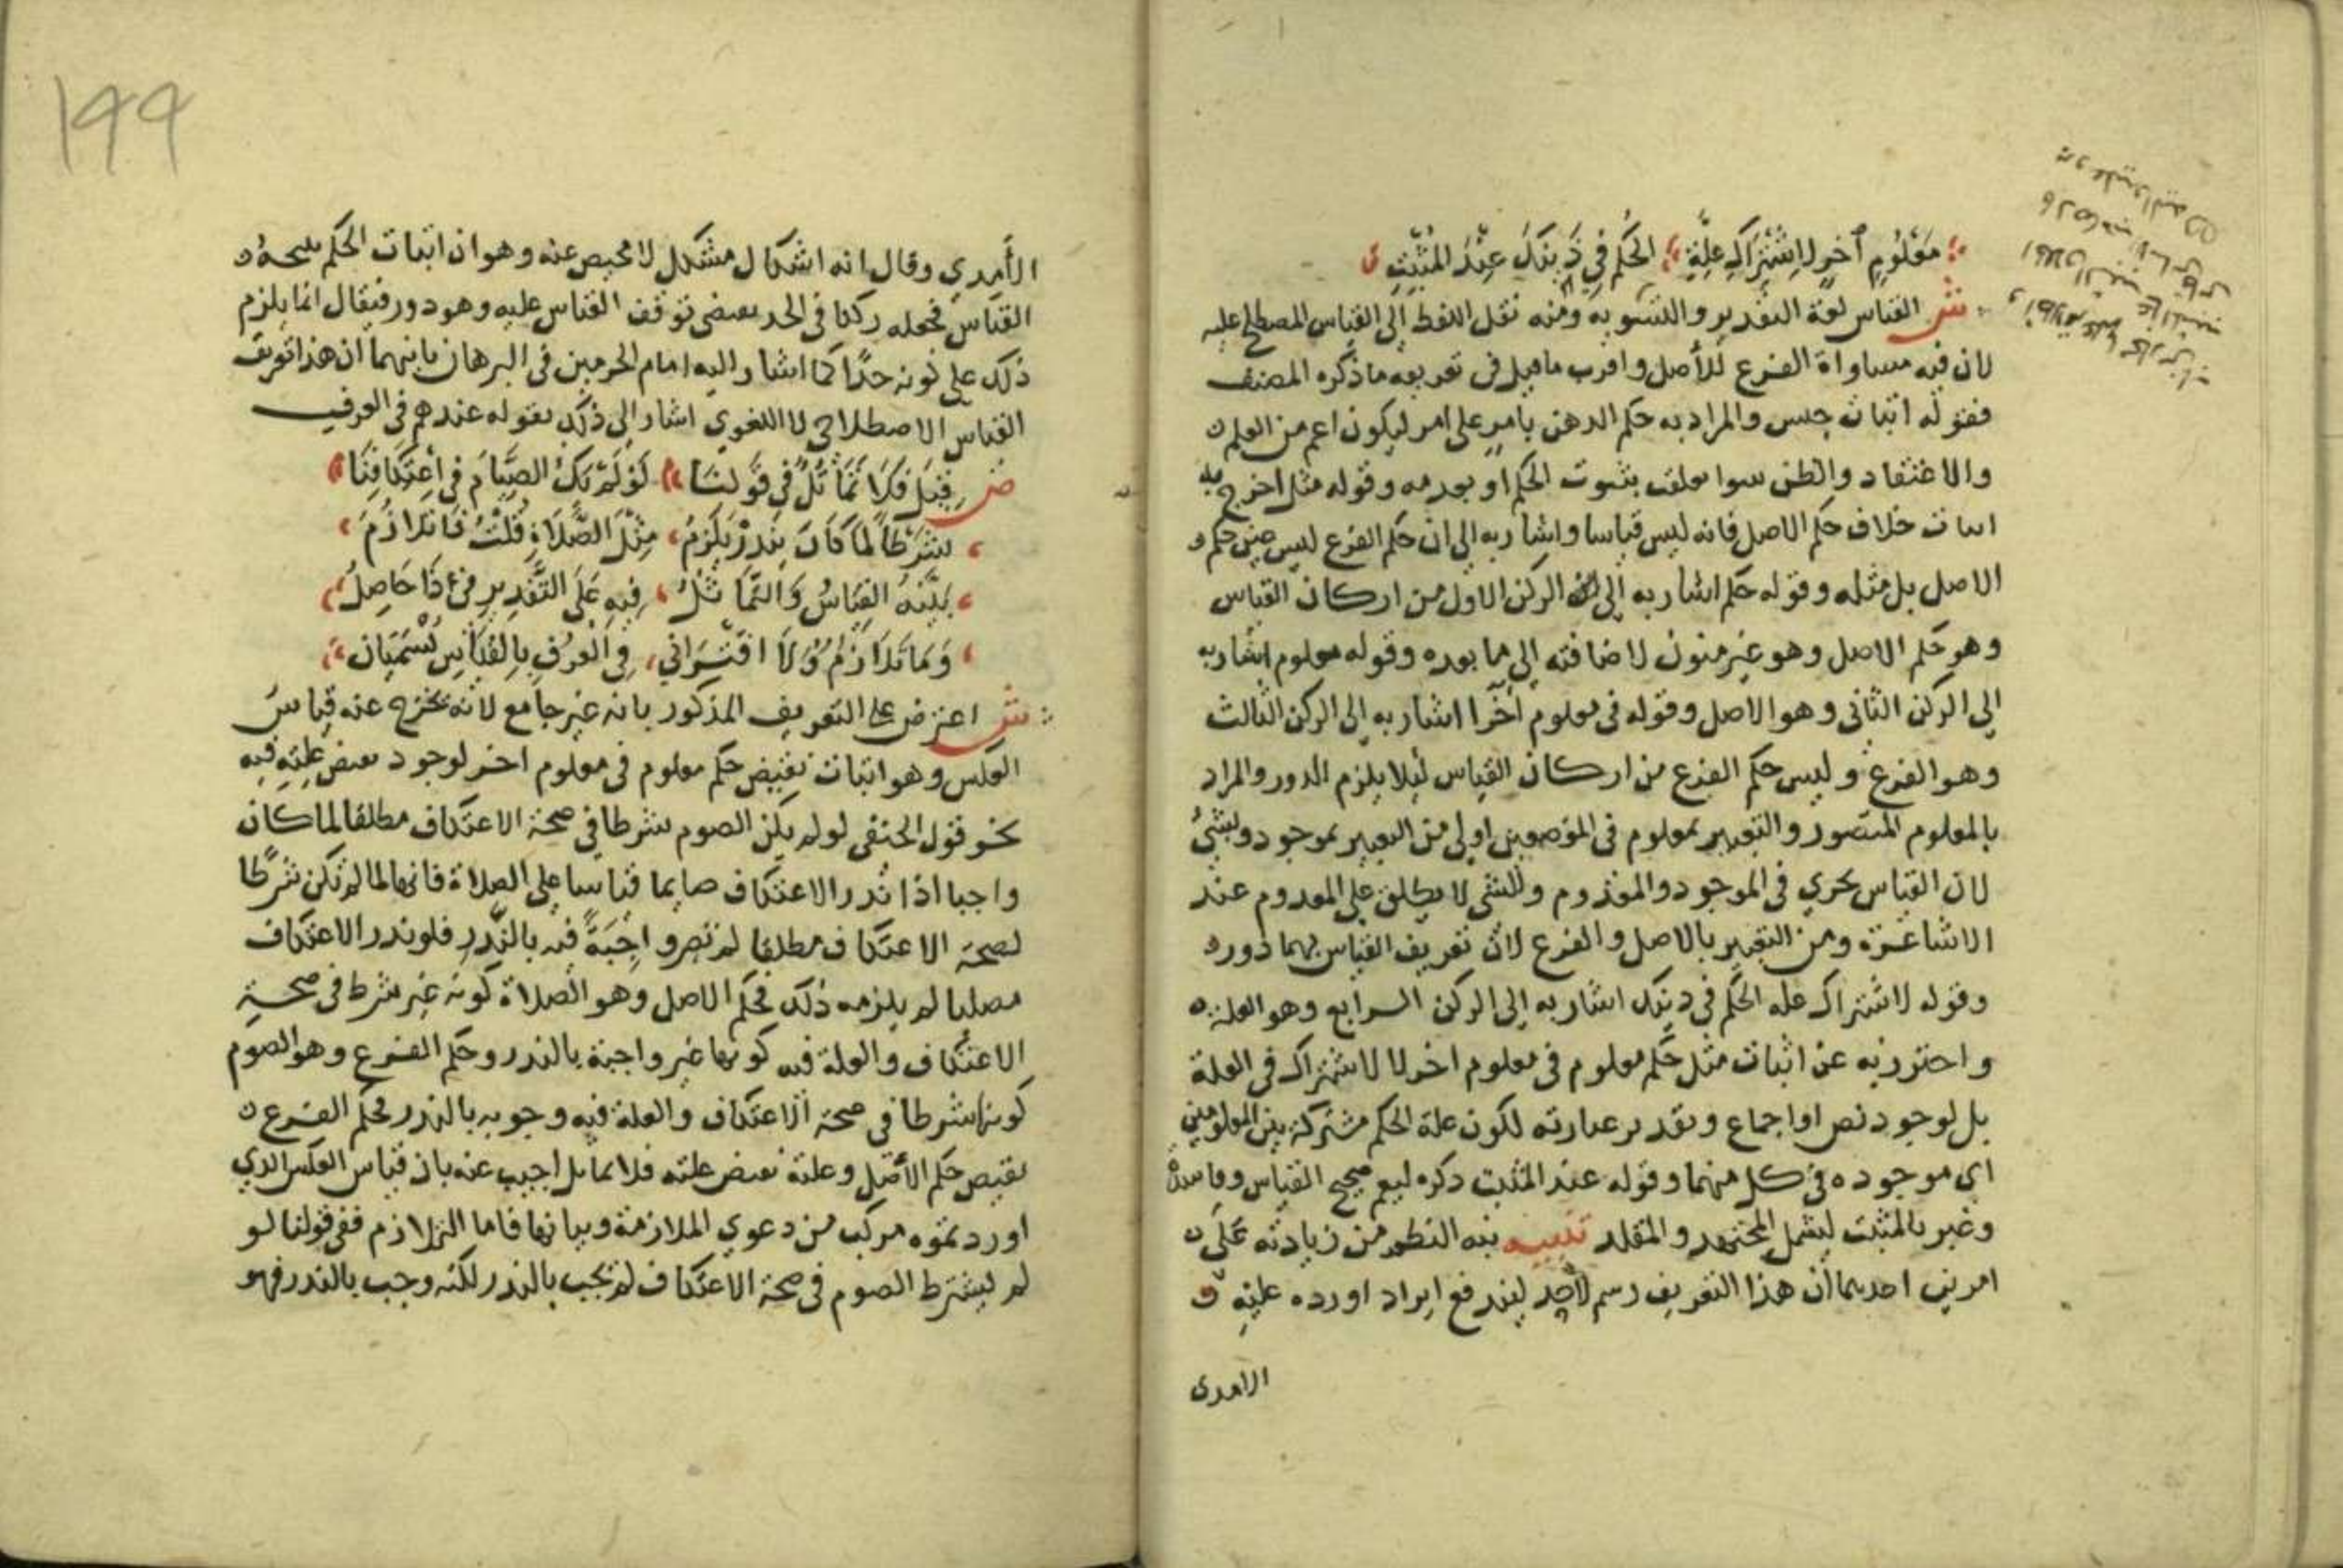 معلوم آخر لاشتراك علة الحكم في ذينك عند المثبت
ش القياس لغة التقدير والتسوية ومنه نقل اللفظ إلى القياس المصطلح عليه
لان فيه مساواة الفرع للأصل واقرب ما قيل في تعريفه ما ذكره المصنف
فقوله اثبات جنس والمراد به حكم الذهن بامر على امر ليكون اعم من العلم
والاعتقاد والظن سوا تعلقت بثبوت الحكم او بعدمه وقوله مثل اخرج به
اثبات خلاف حكم الاصل فانه ليس قياسا واشار به الى ان حكم الفرع ليس عين حكم
الاصل بل مثله وقوله حكم اشار به إلى الركن الاول من اركان القياس
وهو حكم الاصل وهو غير منون لاضافته إلى ما بعده وقوله معلوم اشار به
إلى الركن الثاني وهو الاصل وقوله في معلوم آخرا اشار به إلى الركن الثالث
وهو الفرع وليس حكم الفرع من اركان القياس ليلا يلزم الدور والمراد
بالمعلوم المتصور والتعبير بمعلوم في الموضعين اولى من التعبير بموجود وبشئ
لان القياس يجري في الموجود والمعدوم والشي لا يطلق على المعدوم عند
الاشاعرة ومن التعبير بالاصل والفرع لان تعريف القياس بهما دور
وقوله لاشتراك علة الحكم في ذينك اشار به إلى الركن الرابع وهو العلة
واحترز به عن اثبات مثل حكم معلوم في معلوم اخر لا لاشتراك في العلة
بل لوجود نص او اجماع وتقدير عبارته لكون علة الحكم مشتركة بين المعلومين
اي موجوده في كل منهما وقوله عند المثبت ذكره ليعم صحيح القياس وفاسده
وعبر بالمثبت ليشمل المجتهد والمقلد تنبيه نبه الناظم من زيادته على
امرين احدهما ان هذا التعريف رسم لاحد ليندفع ايراد اورده عليه
الامدي
١٩٩
الأمدي وقال انه اشكال مشكل لا محيص عنه وهو ان اثبات الحكم نتيجة
القياس فجعله ركنا في الحد يقتضي توقف القياس عليه وهو دور فيقال انما يلزم
ذلك على كونه حدًا كما اشار اليه امام الحرمين في البرهان ثانيهما ان هذا تعريف
القياس الاصطلاحي لا اللغوي اشار إلى ذلك بقوله عندهم في العرف
ض قيل فلا تماثل في قولنا لو لم يك الصيام في اعتكافنا
شرطا لما كان بنذر يلزم مثل الصلاة قلت فاتلازم
بينه القياس والتماثل فيه على التقدير في ذا حاصل
وما تلازم ولا اقتراني في العرف بالقياس يسميان
ش اعترض على التعريف المذكور بانه غير جامع لانه يخرج عنه قياس
العكس وهو اثبات نقيض حكم معلوم في معلوم اخر لوجود نقيض علته فيه
نحو قول الحنفي لو لم يكن الصوم شرطا في صحة الاعتكاف مطلقا لما كان
واجبا اذا نذر الاعتكاف صايما قياسا على الصلاة فانها لما لم تكن شرطا
لصحة الاعتكاف مطلقا لم تصر واجبة فيه بالنذر فلو نذر الاعتكاف
مصليا لم يلزمه ذلك فحكم الاصل وهو الصلاة كونه غير شرط في صحة
الاعتكاف والعلة فيه كونها غير واجبة بالنذر وحكم الفرع وهو الصوم
كونها شرطا في صحة الاعتكاف والعلة فيه وجوبه بالنذر فحكم الفرع
نقيض حكم الأصل وعلته نقيض علته فلا تماثل اجيب عنه بان قياس العكس الذي
اوردتموه مركب من دعوي الملازمة وبيانها فاما التلازم ففي قولنا لو
لم يشترط الصوم في صحة الاعتكاف لم يجب بالنذر لكنه وجب بالنذر فهو